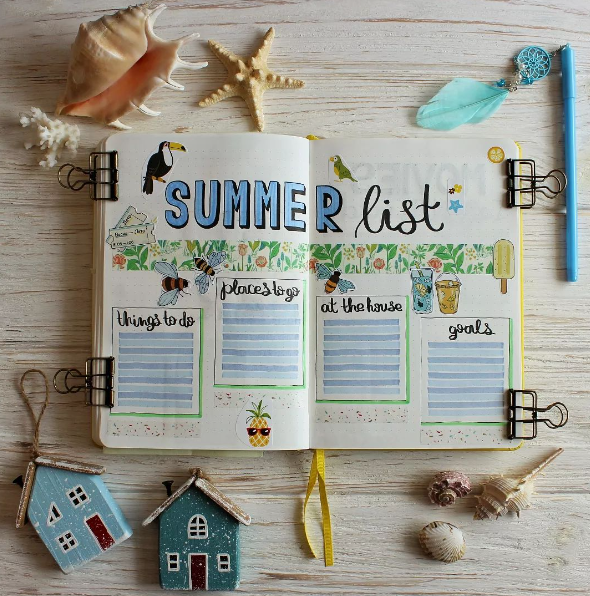 SUMMER list
things to do
places to go
at the house
goals